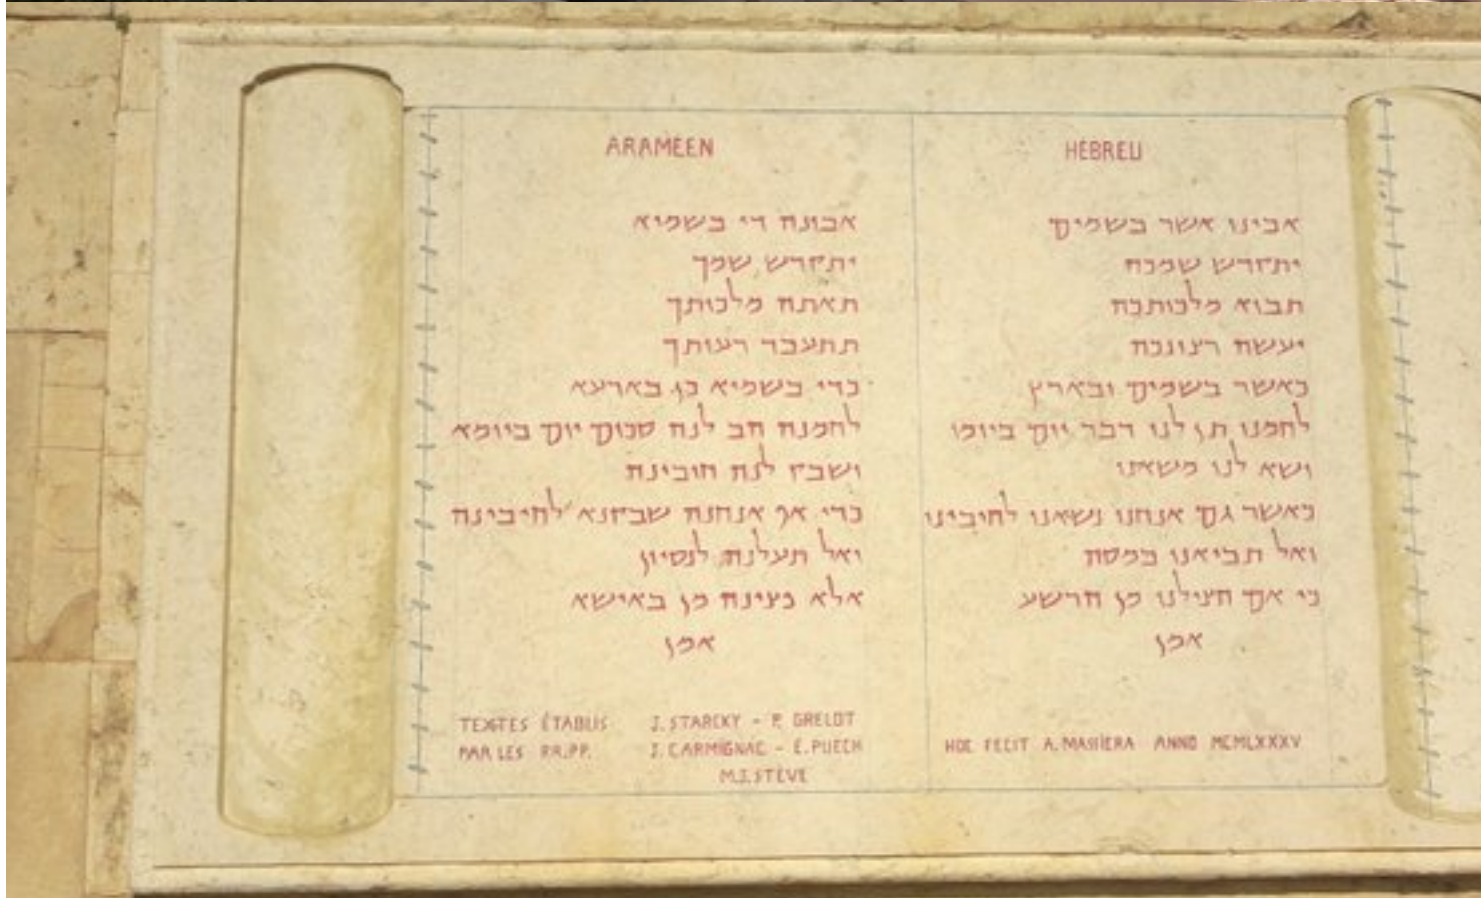 ARAMEEN
אבונה די בשמיא
יתקדש שמך
תאתה מלכותך
תתעבד רעותך
כדי בשמיא כן בארעא
לחמנה הב לנה סכום יום ביומא
ושבק לנה חובינה
כדי אף אנחנה שבקנא לחיבינה
ואל תעלנה לנסיון
אלא פצינה מן באישא
אמן
TEXTES ÉTABLIS J. STARCKY - P. GRELOT
PAR LES RR.PP. J. CARMIGNAC - E. PUECH
M.J. STÈVE
HÉBREU
אבינו אשר בשמים
יתקדש שמכה
תבוא מלכותכה
יעשה רצונכה
כאשר בשמים ובארץ
לחמנו תן לנו דבר יום ביומו
ושא לנו
כאשר גם אנחנו נשאנו לחיבינו
ואל תביאנו במסה
כי אם הצילנו מן הרשע
אמן
HOC FECIT A. MASSIERA ANNO MCMLXXXV